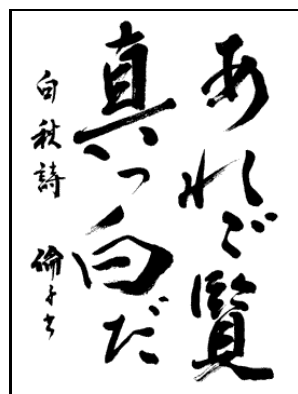 あれご覧
真っ白だ
白秋詩 倫子書